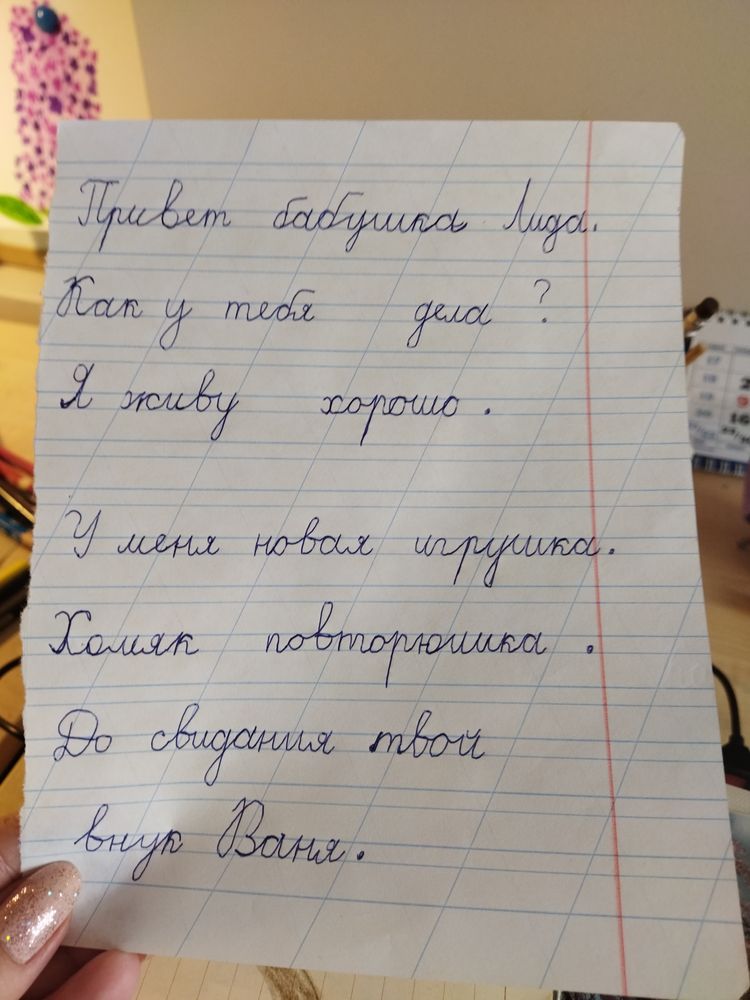 Привет бабушка Лида.
Как у тебя дела ?
Я живу хорошо .
У меня новая игрушка.
Хомяк повторюшка .
До свидания твой
внук Ваня.